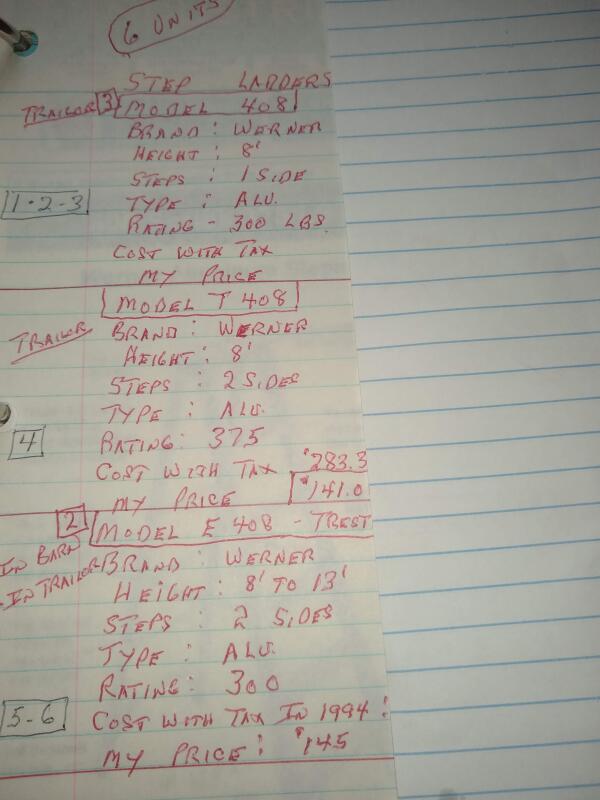 6 UNITS
STEP LADDERS
TRAILOR 3 MODEL 408
BRAND: WERNER
HEIGHT: 8'
STEPS : 1 SIDE
1·2-3 TYPE : ALU.
RATING - 300 LBS
COST WITH TAX
MY PRICE
MODEL T 408
TRAILOR BRAND: WERNER
HEIGHT: 8'
STEPS : 2 SIDES
TYPE : ALU.
4 RATING: 375
COST WITH TAX $283.3
MY PRICE $141.0
2 MODEL E 408 - TREST
IN BARN BRAND: WERNER
IN TRAILOR HEIGHT: 8' TO 13'
STEPS : 2 SIDES
TYPE : ALU.
RATING: 300
5-6 COST WITH TAX IN 1994:
MY PRICE: $145